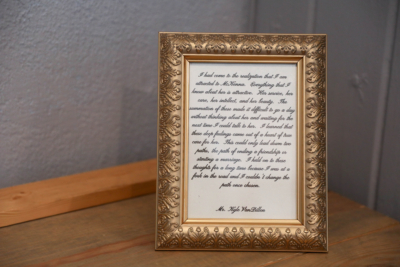 I had come to the realization that I was
attracted to McKenna. Everything that I
knew about her is attractive. Her smile, her
care, her intellect, and her beauty. The
summation of these made it difficult to go a day
without thinking about her and waiting for the
next time I could talk to her. I learned that
these deep feelings came out of a heart of true
care for her. This could only lead down two
paths, the path of ending a friendship or
starting a marriage. I held on to these
thoughts for a long time because I was at a
fork in the road and I couldn't change the
path once chosen.
Mr. Kyle